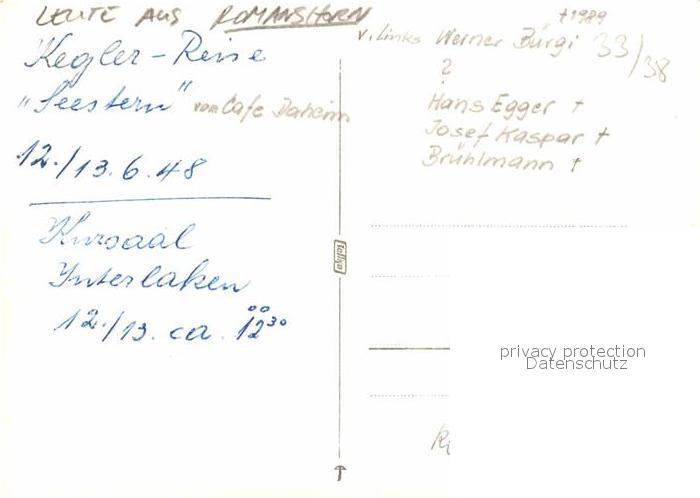 LEUTE AUS ROMANSHORN
Kegler-Reise
"Seestern" vom Cafe Daheim
12./13.6.48
Kursaal
Interlaken
12./13. ca. 12³⁰
†1989
v. links Werner Bürgi 33/38
?
Hans Egger †
Josef Kaspar †
Brühlmann †
tellko
privacy protection
Datenschutz